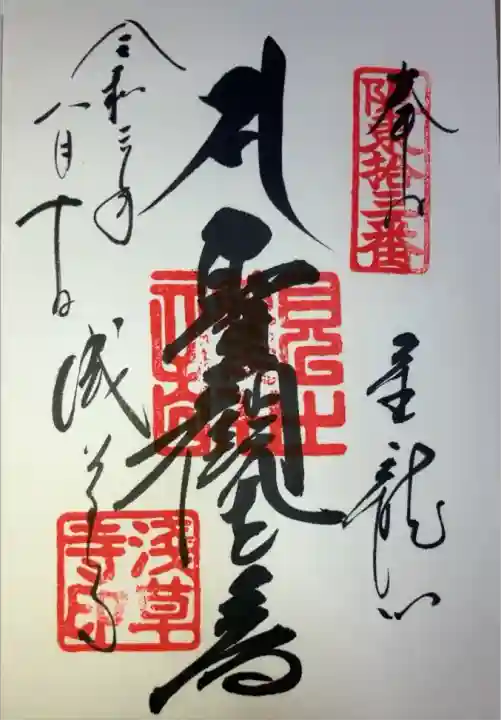 奉拝
坂東拾三番
金龍山
聖観世音
令和三年
八月十日
浅草寺
浅草寺印